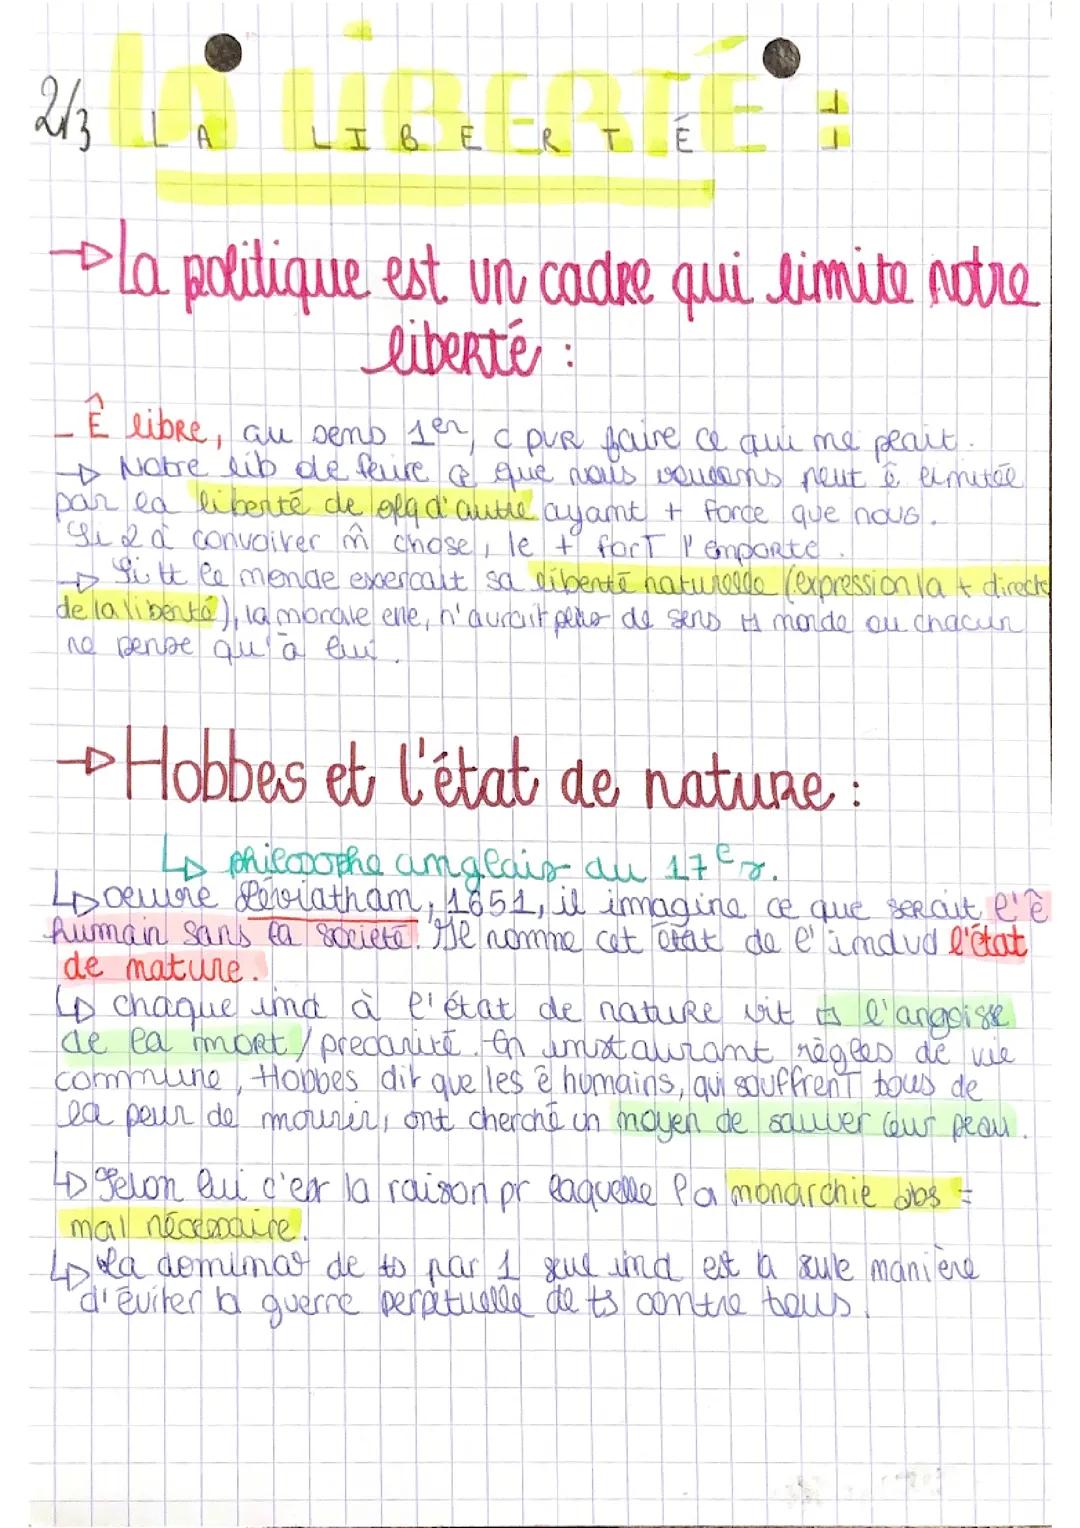 2/3 LA LIBERTÉ :
LA LIBERTÉ :
→ La politique est un cadre qui limite notre
liberté :
- Ê libre, au sens 1er, c pvr faire ce qui me plait.
→ Notre lib de faire ce que nous voulons peut ê limitée
par la liberté de qlq d'autre ayant + force que nous.
Si 2 à convoiter m̂ chose, le + fort l'emporte.
→ Si tt le monde exerçait sa liberté naturelle (expression la + directe
de la liberté), la morale elle, n'aurait plus de sens monde ou chacun
ne pense qu'à lui.
→ Hobbes et l'état de nature :
↳ philosophe anglais du 17e s.
↳ oeuvre Léviatham, 1651, il immagine ce que serait l'ê
humain sans la société. Il nomme cet état de l'indvd l'état
de nature.
↳ chaque ind à l'état de nature vit ds l'angoisse
de la mort / précarité. En instaurant règles de vie
commune, Hobbes dit que les ê humains, qui souffrent tous de
la peur de mourir, ont cherché un moyen de sauver leur peau.
↳ Selon lui c'est la raison pr laquelle la monarchie abs =
mal nécessaire.
↳ La dominat° de ts par 1 seul ind est la sule manière
d'éviter la guerre perpétuelle de ts contre tous.